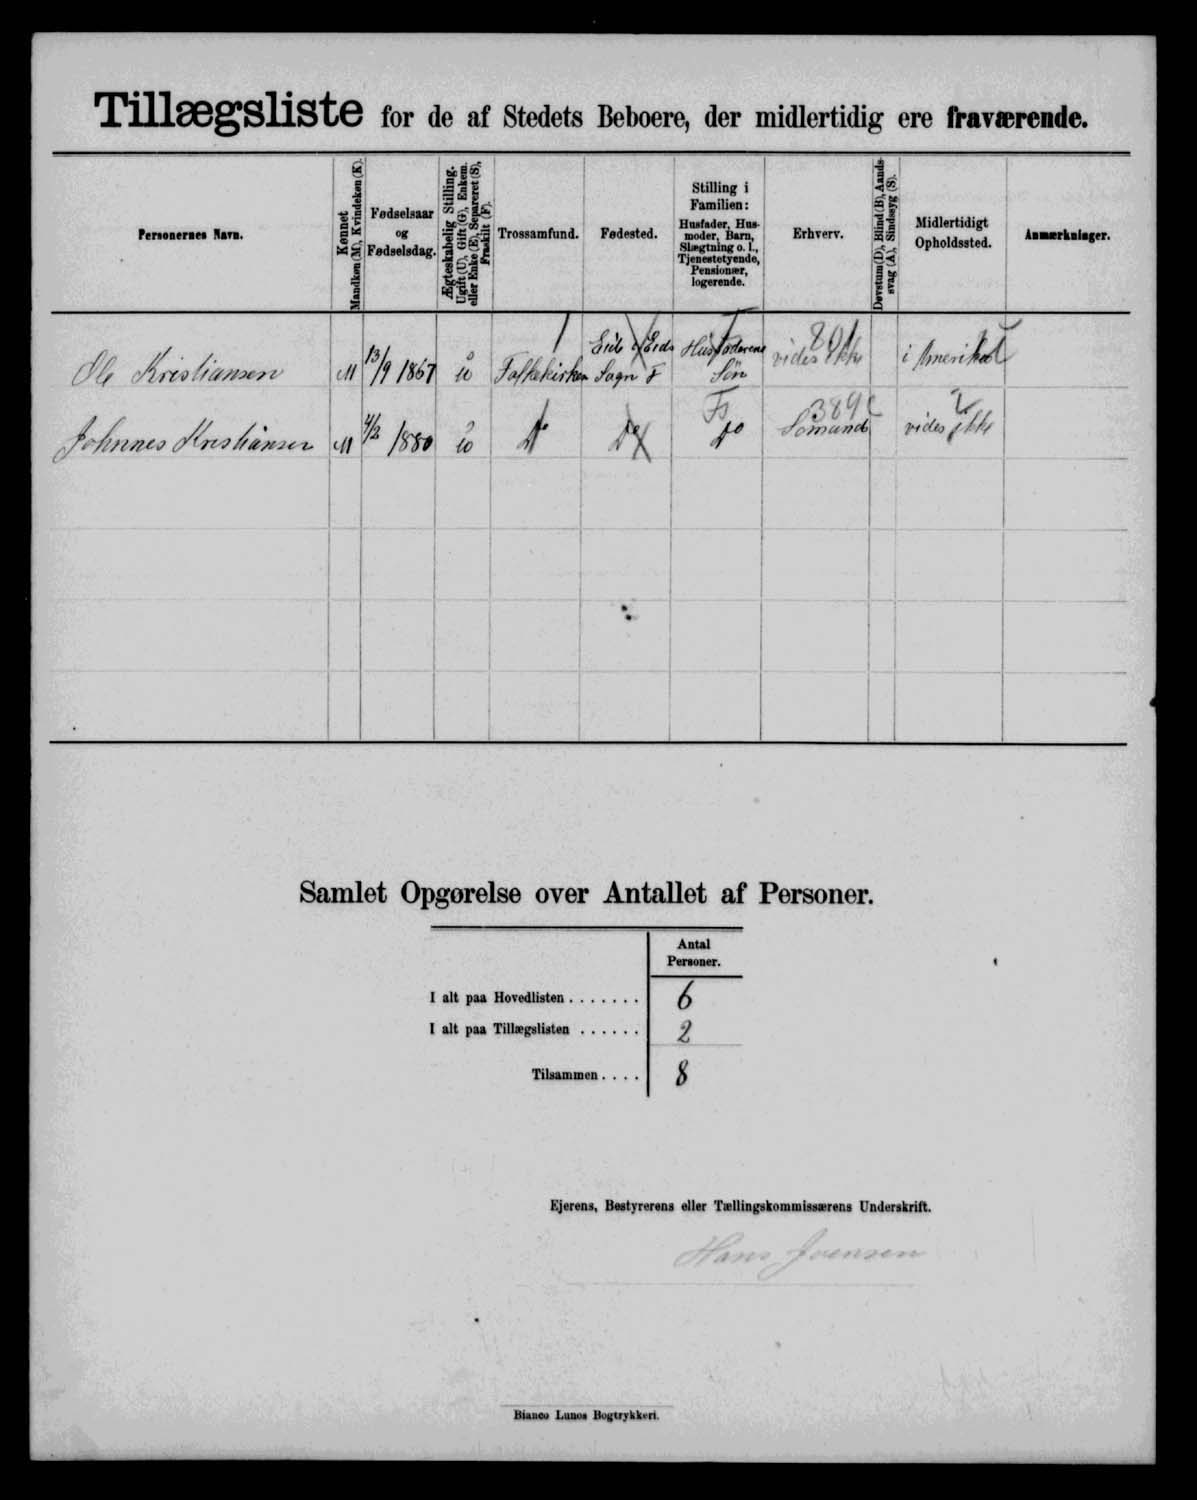 Tillægsliste for de af Stedets Beboere, der midlertidig ere fraværende.
Personernes Navn.
Kønnet Mandkøn (M), Kvindekøn (K).
Fødselsaar og Fødselsdag.
Ægteskabelig Stilling. Ugift (U), Gift (G), Enkem. eller Enke (E), Separeret (S), Fraskilt (F).
Trossamfund.
Fødested.
Stilling i Familien:
Husfader, Husmoder, Barn, Slægtning o. l., Tjenestetyende, Pensionær, logerende.
Erhverv.
Døvstum (D), Blind (B), Aandssvag (A), Sindssyg (S).
Midlertidigt Opholdssted.
Anmærkninger.
Ole Kristiansen M 13/9 1867 Folkekirken Sogn Husfaderens Søn 801 vides ikke i Amerika
Johnnes Kristiansen M 4/2 1880 Do Do Fs Do 389 Sømand vides ikke
Samlet Opgørelse over Antallet af Personer.
Antal
Personer.
I alt paa Hovedlisten . . . . . . . 6
I alt paa Tillægslisten . . . . . . 2
Tilsammen . . . . 8
Ejerens, Bestyrerens eller Tællingskommissærens Underskrift.
Hans Joensen
Bianco Lunos Bogtrykkeri.